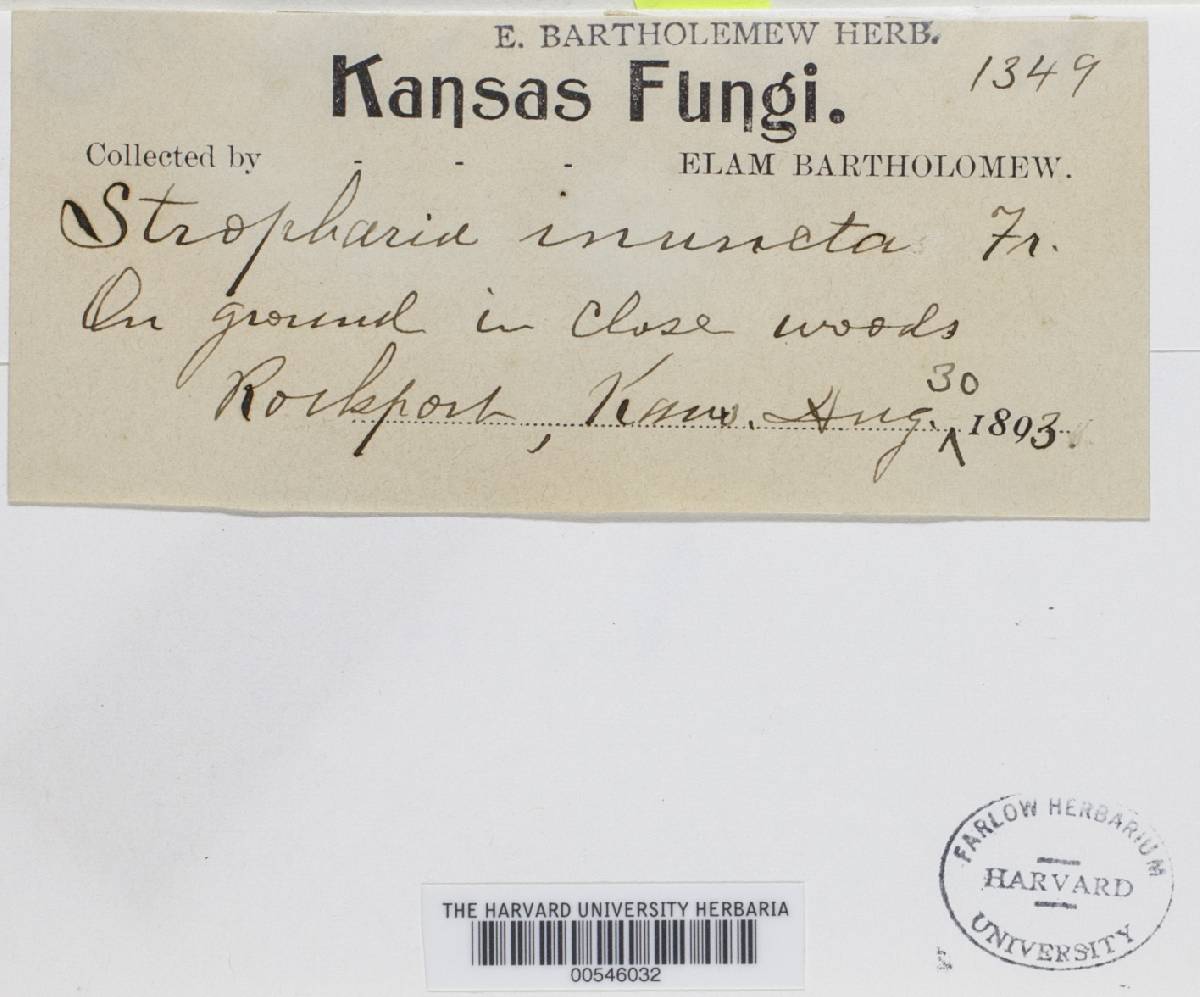 E. BARTHOLEMEW HERB.
Kansas Fungi.
1349
Collected by - - - ELAM BARTHOLOMEW.
Stropharia inuncta Fr.
On ground in close woods
Rockport, Kans. Aug. ^ 30 1893.
FARLOW HERBARIUM
HARVARD
UNIVERSITY
THE HARVARD UNIVERSITY HERBARIA
00546032